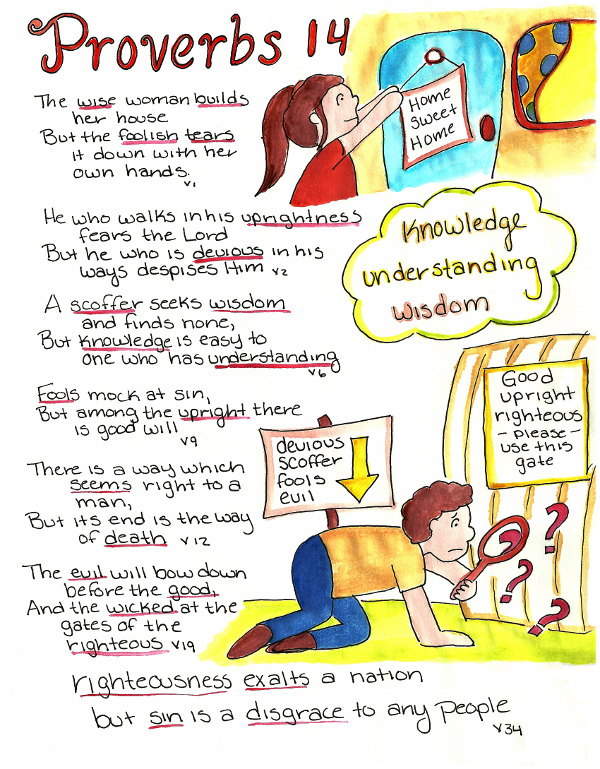 Proverbs 14
The wise woman builds
her house
But the foolish tears
it down with her
own hands.
v1
Home
Sweet
Home
He who walks in his uprightness
fears the Lord
But he who is devious in his
ways despises Him v2
Knowledge
understanding
wisdom
A scoffer seeks wisdom
and finds none,
But knowledge is easy to
one who has understanding
v6
Fools mock at sin,
But among the upright there
is good will
v9
There is a way which
seems right to a
man,
But its end is the way
of death v12
The evil will bow down
before the good,
And the wicked at the
gates of the
righteous v19
devious
scoffer
fools
evil
Good
upright
righteous
- please -
use this
gate
? 
?
?
righteousness exalts a nation
but sin is a disgrace to any people
v34